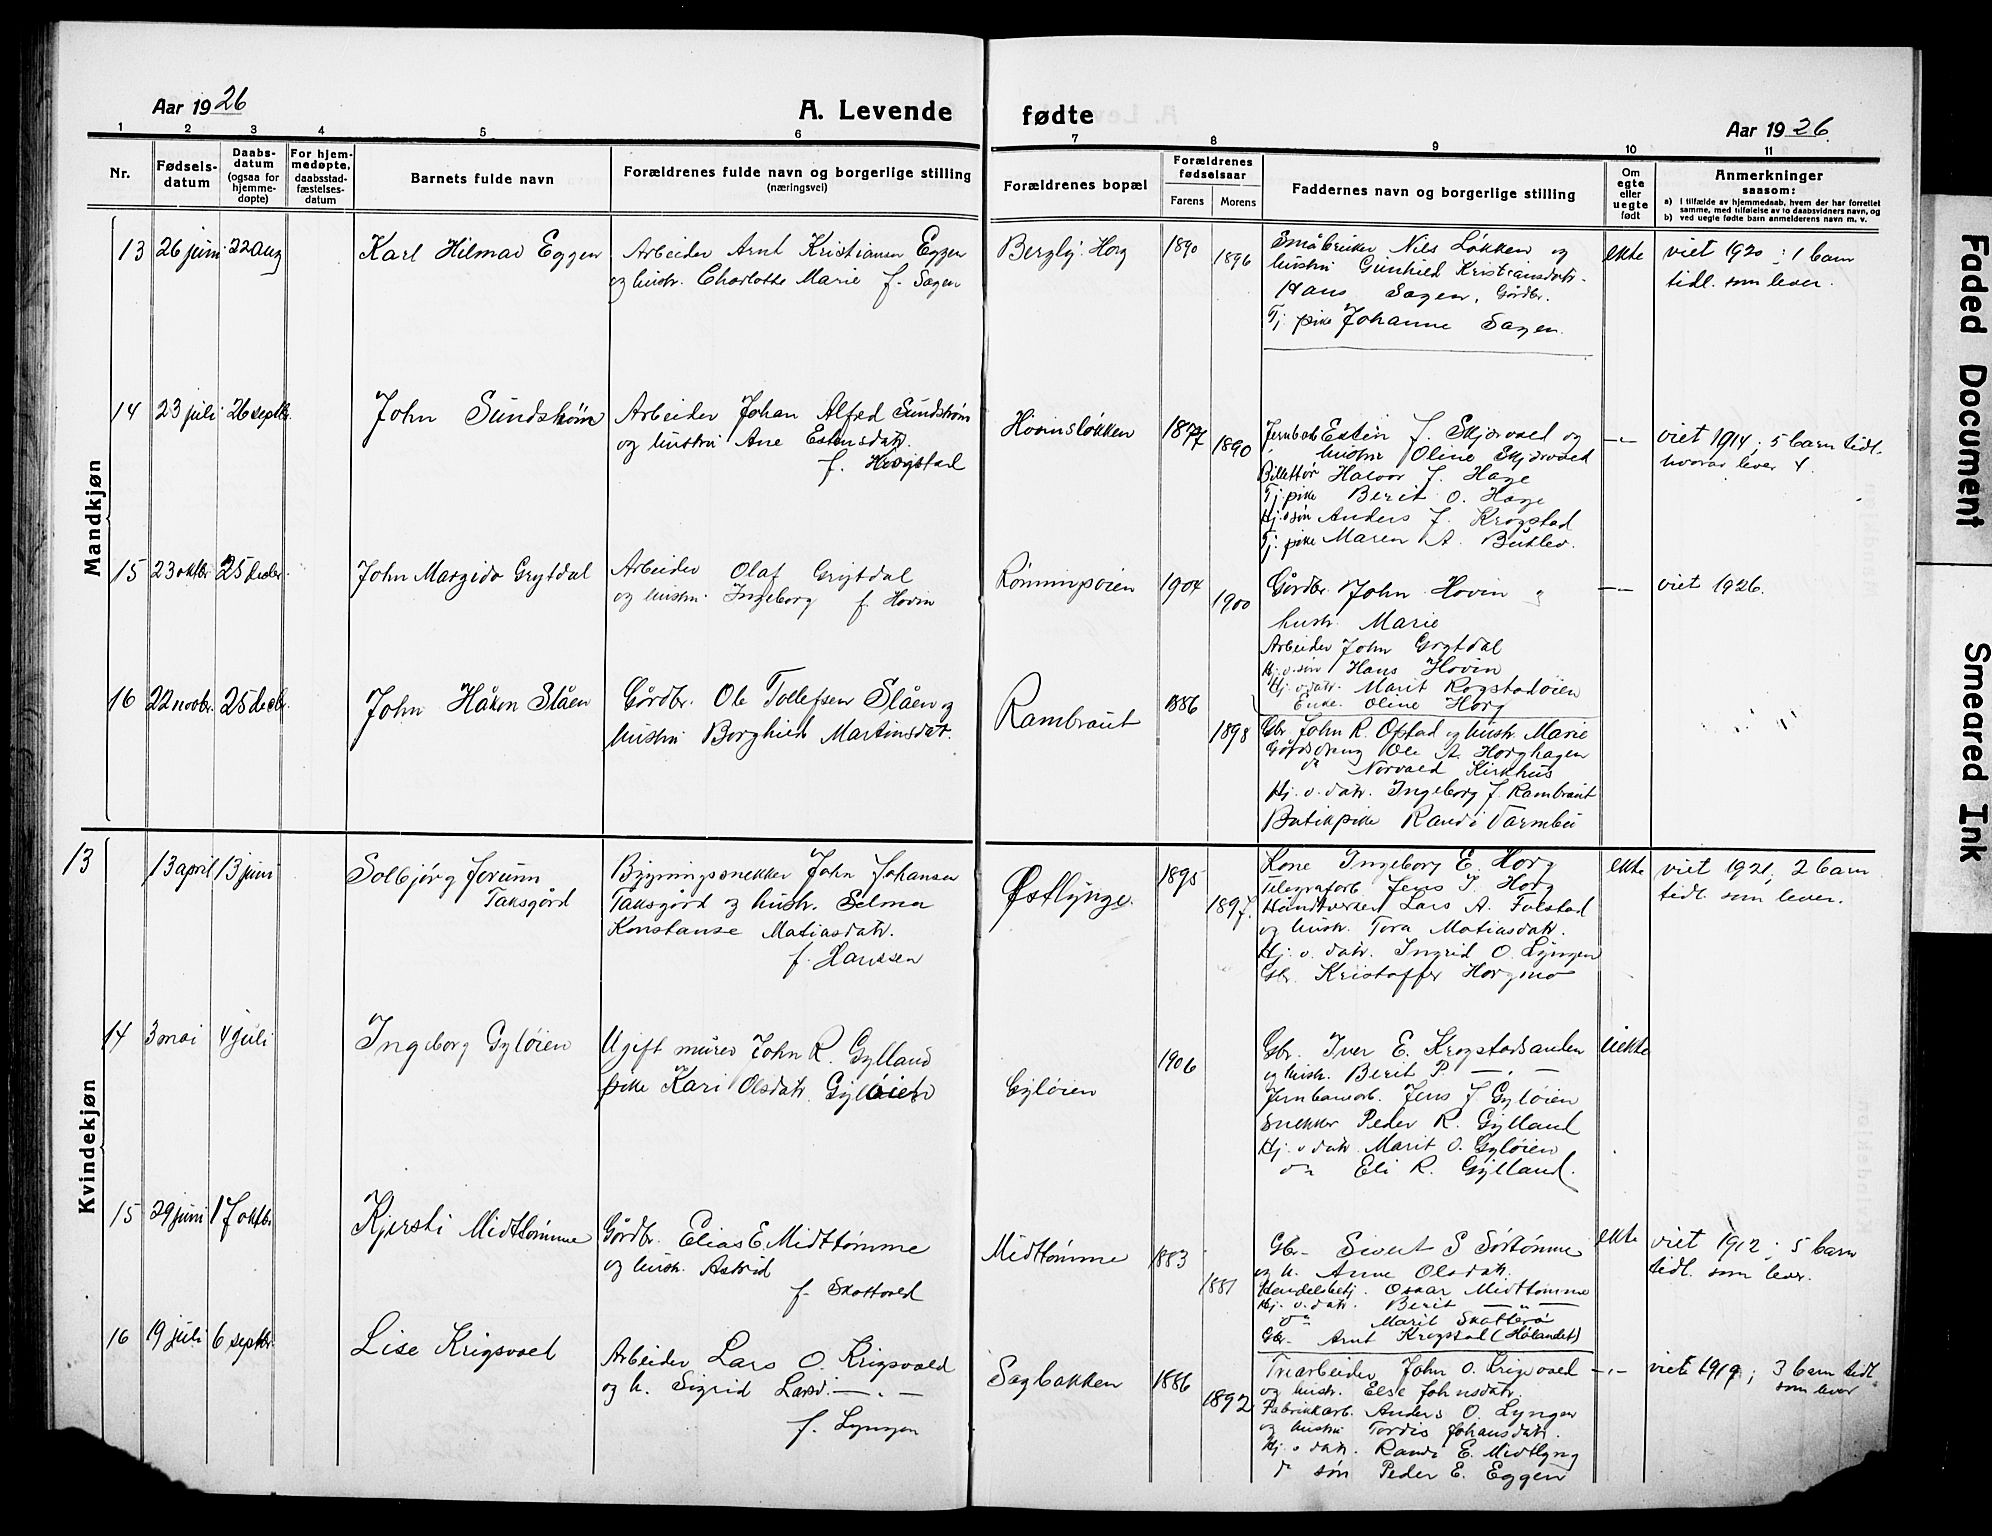 Aar 1926
A. Levende fødte
Aar 1926.
1 2 3 4 5 6 7 8 9 10 11
Nr.
Fødsels-
datum
Daabs-
datum
(ogsaa for
hjemme-
døpte)
For hjem-
medøpte,
daabsstad-
fæstelses-
datum
Barnets fulde navn
Forældrenes fulde navn og borgerlige stilling
(næringsvei)
Forældrenes bopæl
Forældrenes
fødselsaar
Farens Morens
Faddernes navn og borgerlige stilling
Om
egte
eller
uegte
født
Anmerkninger
saasom:
a) I tilfælde av hjemmedaab, hvem der har forrettet
samme, med tilføielse av to daabsvidners navn, og
b) ved uegte fødte barn anmelderens navn m. v.
Mandkjøn
13 26 juni 22 aug
Karl Hilmar Eggen
Arbeider Arnt Kristiansen Eggen
og hustr. Charlotte Marie f. Sagen
Bergly Horg
1890
1896
Småbruker Nils Løkken og
hustru Gunhild Kristiansdatr.
Hans Sagen, Gårdbr.
Tj. pike Johanne Sagen.
ekte
viet 1920; 1 barn
tidl. som lever.
14 23 juli 26 septbr.
John Sundstrøm
Arbeider Johan Alfred Sundstrøm
og hustru Ane Estensdatr.
f. Krogstad
Hovinsløkken
1877
1890
Jernbarb Estin J. Skjervold og
hustru Oline Skjervold
Billettør Halvor J. Hage
Tj pike Berit O. Hage
Hj.v.søn Anders J. Krogstad
Tj. pike Maren A. Buhlev.
-"-
viet 1914; 5 barn tidl.
hvorav lever 4.
15 23 oktbr 25 decbr.
John Margido Grytdal
Arbeider Olaf Grytdal
og hustru. Ingeborg f. Hovin
Rønningsøien
1904
1900
Gårdbr. John Hovin og
hustr. Marie
Arbeider John Grytdal
Hj. v. søn Hans Hovin
Hj. v. datr. Marit Rogstadøien
Enke. Oline Horg
-"-
viet 1926.
16 22 novbr. 25 decbr.
John Håkon Slåen
Gårdbr. Ole Tollefsen Slåen og
hustru Borghild Martinsdatr.
Rambraut
1886
1898
Gbr. John R. Ofstad og hustr. Marie
Gårdsdreng Ole A. Horghagen
do Norvald Kirkhus
Hj. v. datr. Ingeborg J. Rambraut
Butikpike Randi Varmbu
Kvindekjøn
13 13 april 13 juni
Solbjørg Jorunn
Taksgård
Bygningssnekker John Johansen
Taksgård og hustr. Selma
Konstanse Matiasdatr.
f. Hanssen
Østlynge.
1895
1897.
Kone Ingeborg E. Horg
telegrafarb. Jens I. Horg
Håndverker Lars A. Folstad
og hustr. Tora Matiasdatr.
Hj. v. datr. Ingrid O. Lyngen
Gbr. Kristoffer Horgmo
ekte
viet 1921, 2 barn
tidl. som lever.
14 3 mai 4 juli
Ingeborg Gyløien
Ugift murer John R. Gylland
pike Kari Olsdatr. Gyløien
Gyløien
1906
Gbr. Iver E. Krogstadsanden
og hustr. Berit P —„—
Jernbanearb. Jens J Gyløien
Snekker Peder R. Gylland
Hj. v datr. Marit O. Gyløien
do Eli R. Gylland.
uekte
15 29 juni 17 oktbr
Kjersti Midttømme
Gårdbr. Elias E. Midttømme
og hustr. Astrid
f. Skottvold
Midttømme
1883
1881
Gbr. Sivert S Sørtømme
og h. Anne Olsdatr.
Handelsbetj. Oskar Midttømme
Hj. v. datr. Berit —„—
do Marit Skotterø
Gbr. Arnt Krogstad (Hølandet)
ekte
viet 1912; 5 barn
tidl. som lever.
16 19 juli 6 septbr.
Lise Krigsvoll
Arbeider Lars O. Krigsvold
og h. Sigrid Larsd. —„—
f. Lyngen
Sagbakken
1886
1892
Træarbeider John O. Krigsvold
og hustr. Else Johnsdatr.
Fabrikkarb. Anders O. Lyngen
og hustru Tordis Johansdatr.
Hj. v datr. Randi E. Midtlyng
do søn Peder E. Eggen
-„-
viet 1919; 3 barn tidl.
som lever
Faded Document
Smeared Ink